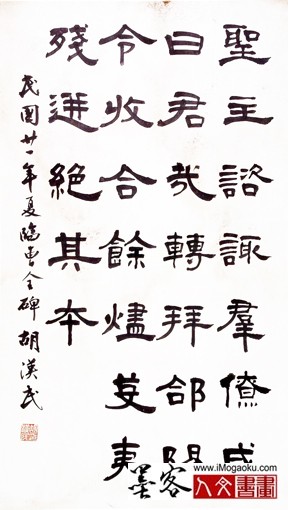 聖主諮諏羣僚咸
曰君哉轉拜郃陽
令收合餘燼芟夷
殘迸絕其本
民國廿一年夏臨曹全碑 胡漢民
墨客
www.iMogaoku.com
人文書畫